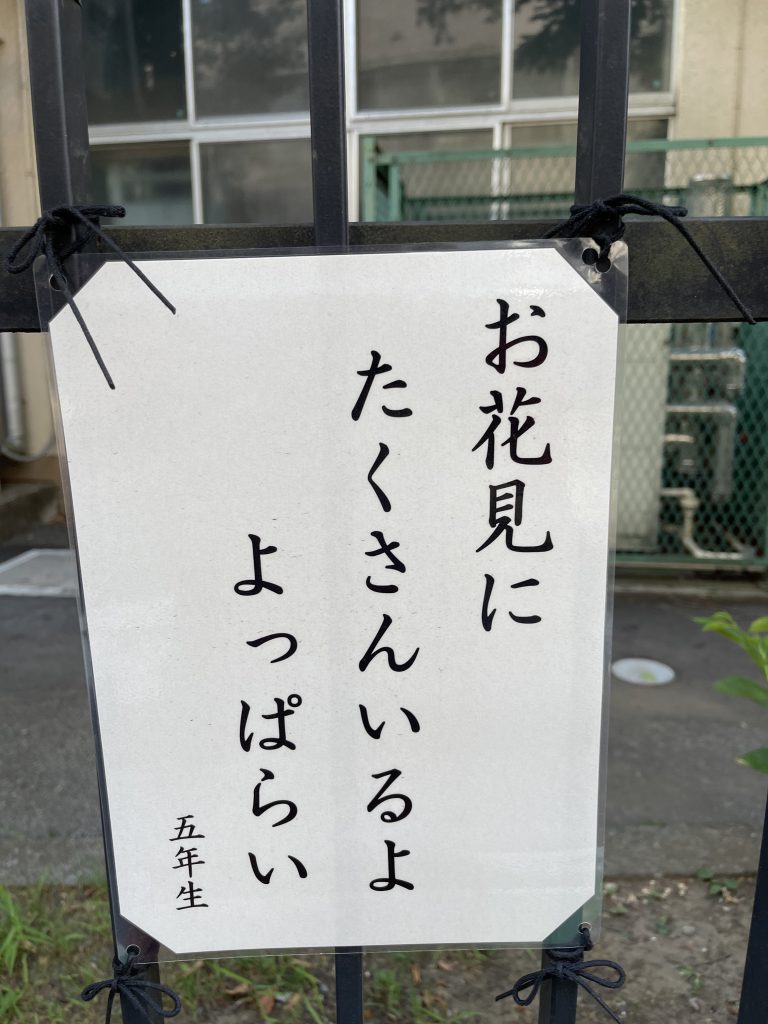 お花見に
たくさんいるよ
よっぱらい
五年生